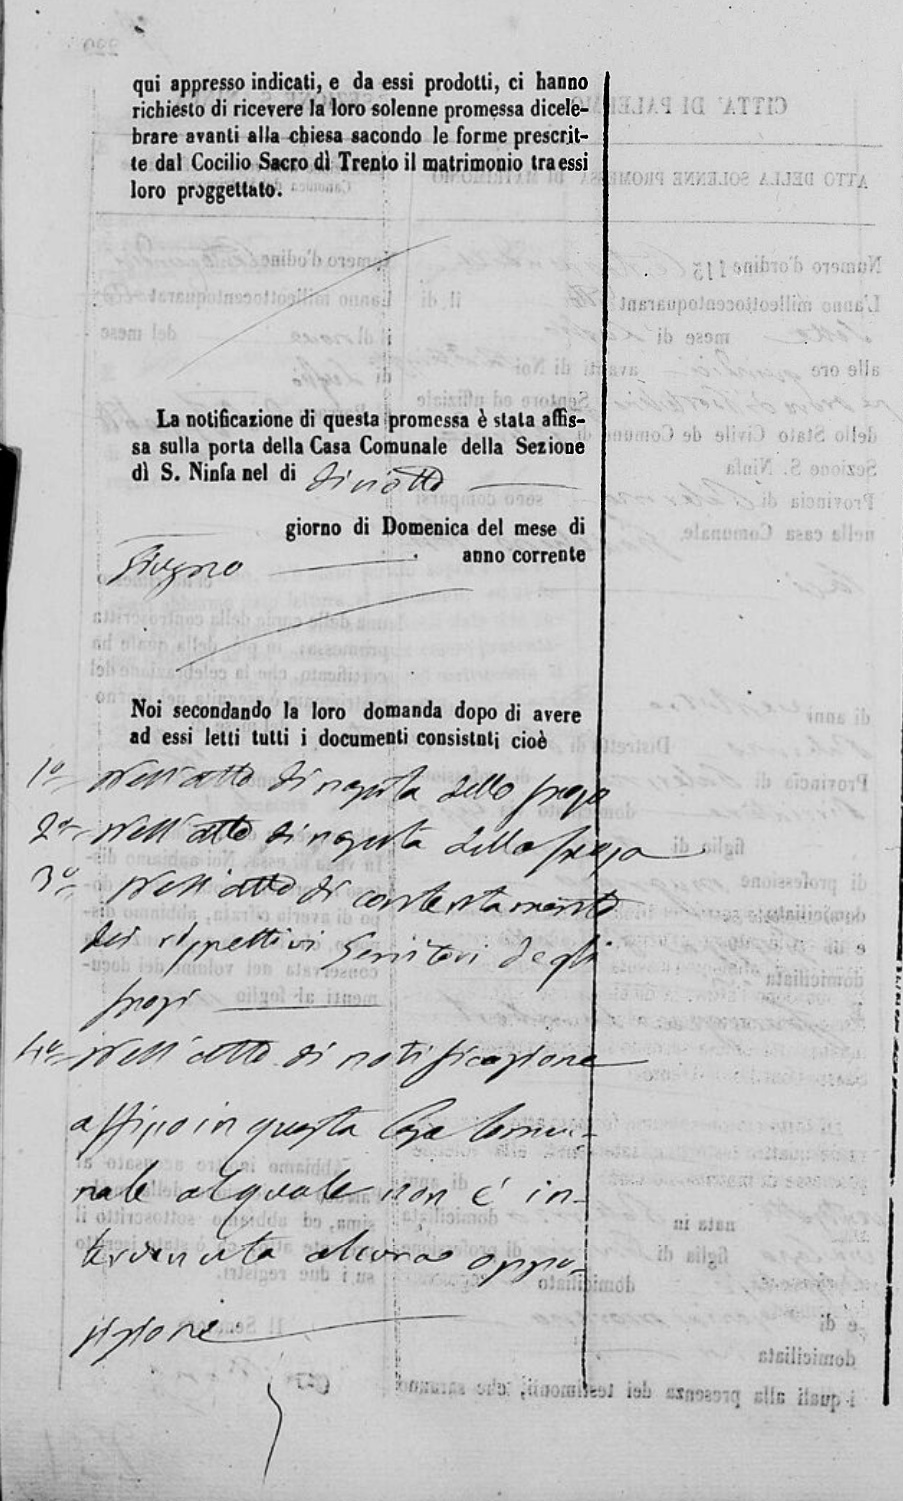 qui appresso indicati, e da essi prodotti, ci hanno
richiesto di ricevere la loro solenne promessa dicele-
brare avanti alla chiesa sacondo le forme prescrit-
te dal Cocilio Sacro di Trento il matrimonio tra essi
loro proggettato.
La notificazione di questa promessa è stata affis-
sa sulla porta della Casa Comunale della Sezione
di S. Ninfa nel di diciotto
giorno di Domenica del mese di
Giugno anno corrente
Noi secondando la loro domanda dopo di avere
ad essi letti tutti i documenti consistnti cioè
1° Nell'atto di nascita dello sposo
2° Nell'atto di nascita della sposa
3° Nell'atto di contentamento
dei rispettivi Genitori degli
sposi
4° Nell'atto di notificazione
affisso in questa Casa Comu-
nale al quale non è in-
tervenuta alcuna oppo-
sizione